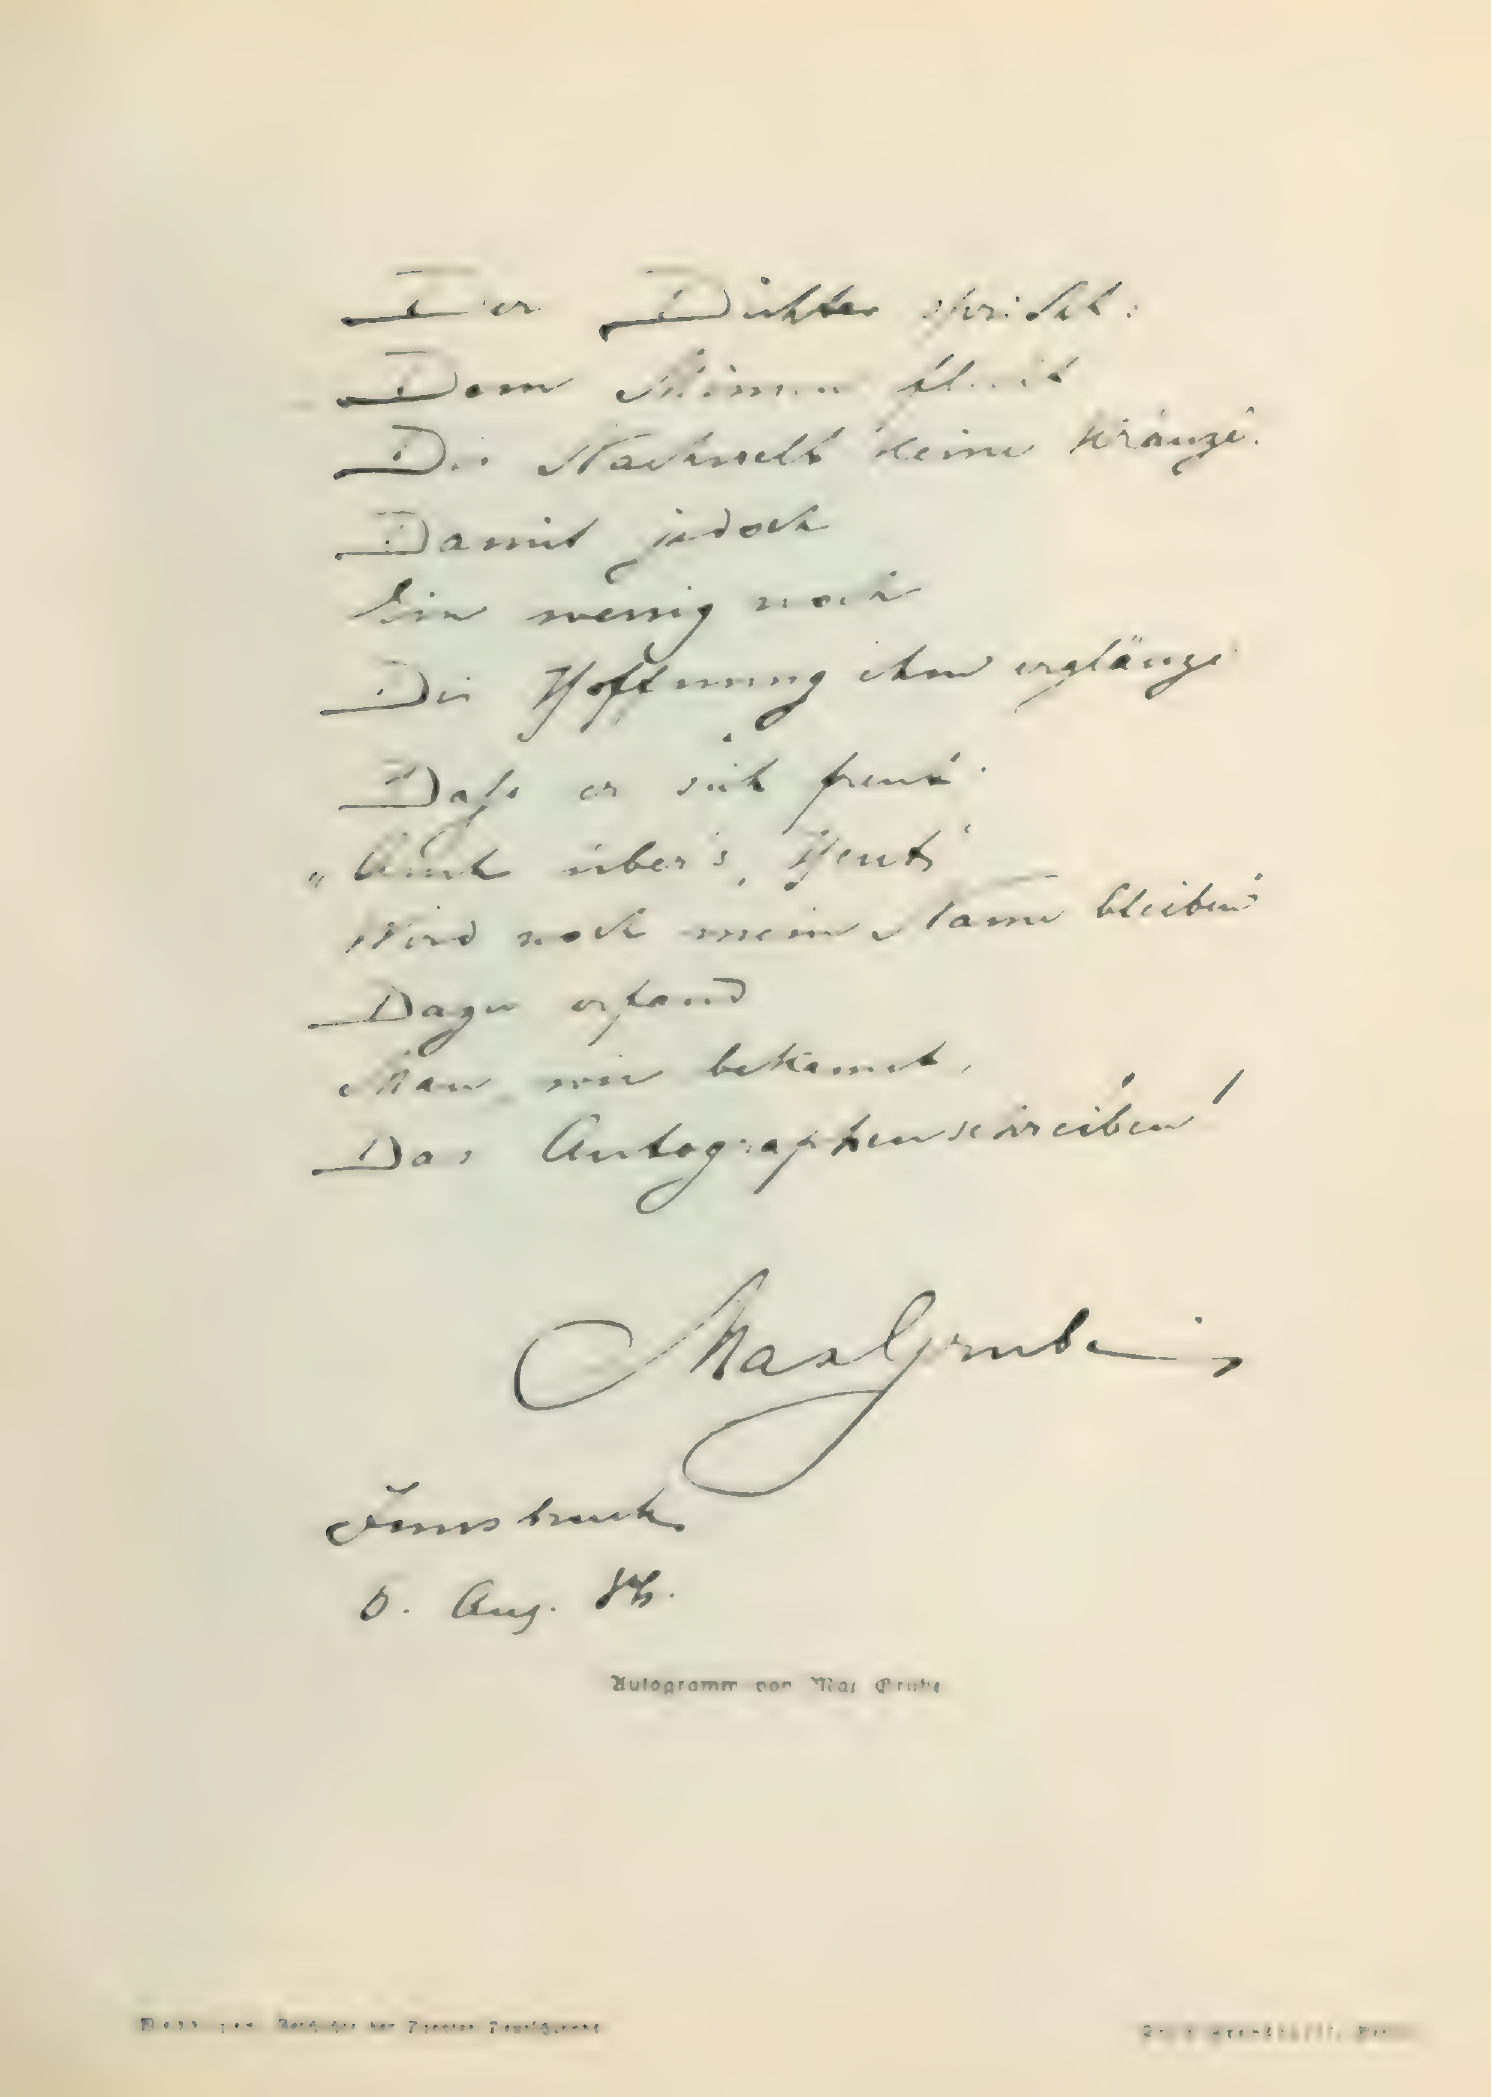 Der Dichter spricht:
Dem Mimen flicht
Die Nachwelt keine Kränze.
Damit jedoch
Ein wenig noch
Die Hoffnung ihm erglänze
Dass er sich freut:
„Auch über's „Heut“
Wird noch mein Name bleiben“
Dazu erfand
Man, wie bekannt,
Das Autographenschreiben!
Max Grube
Innsbruck
Aug.
Autogramm von Max Grube
Geschichte der